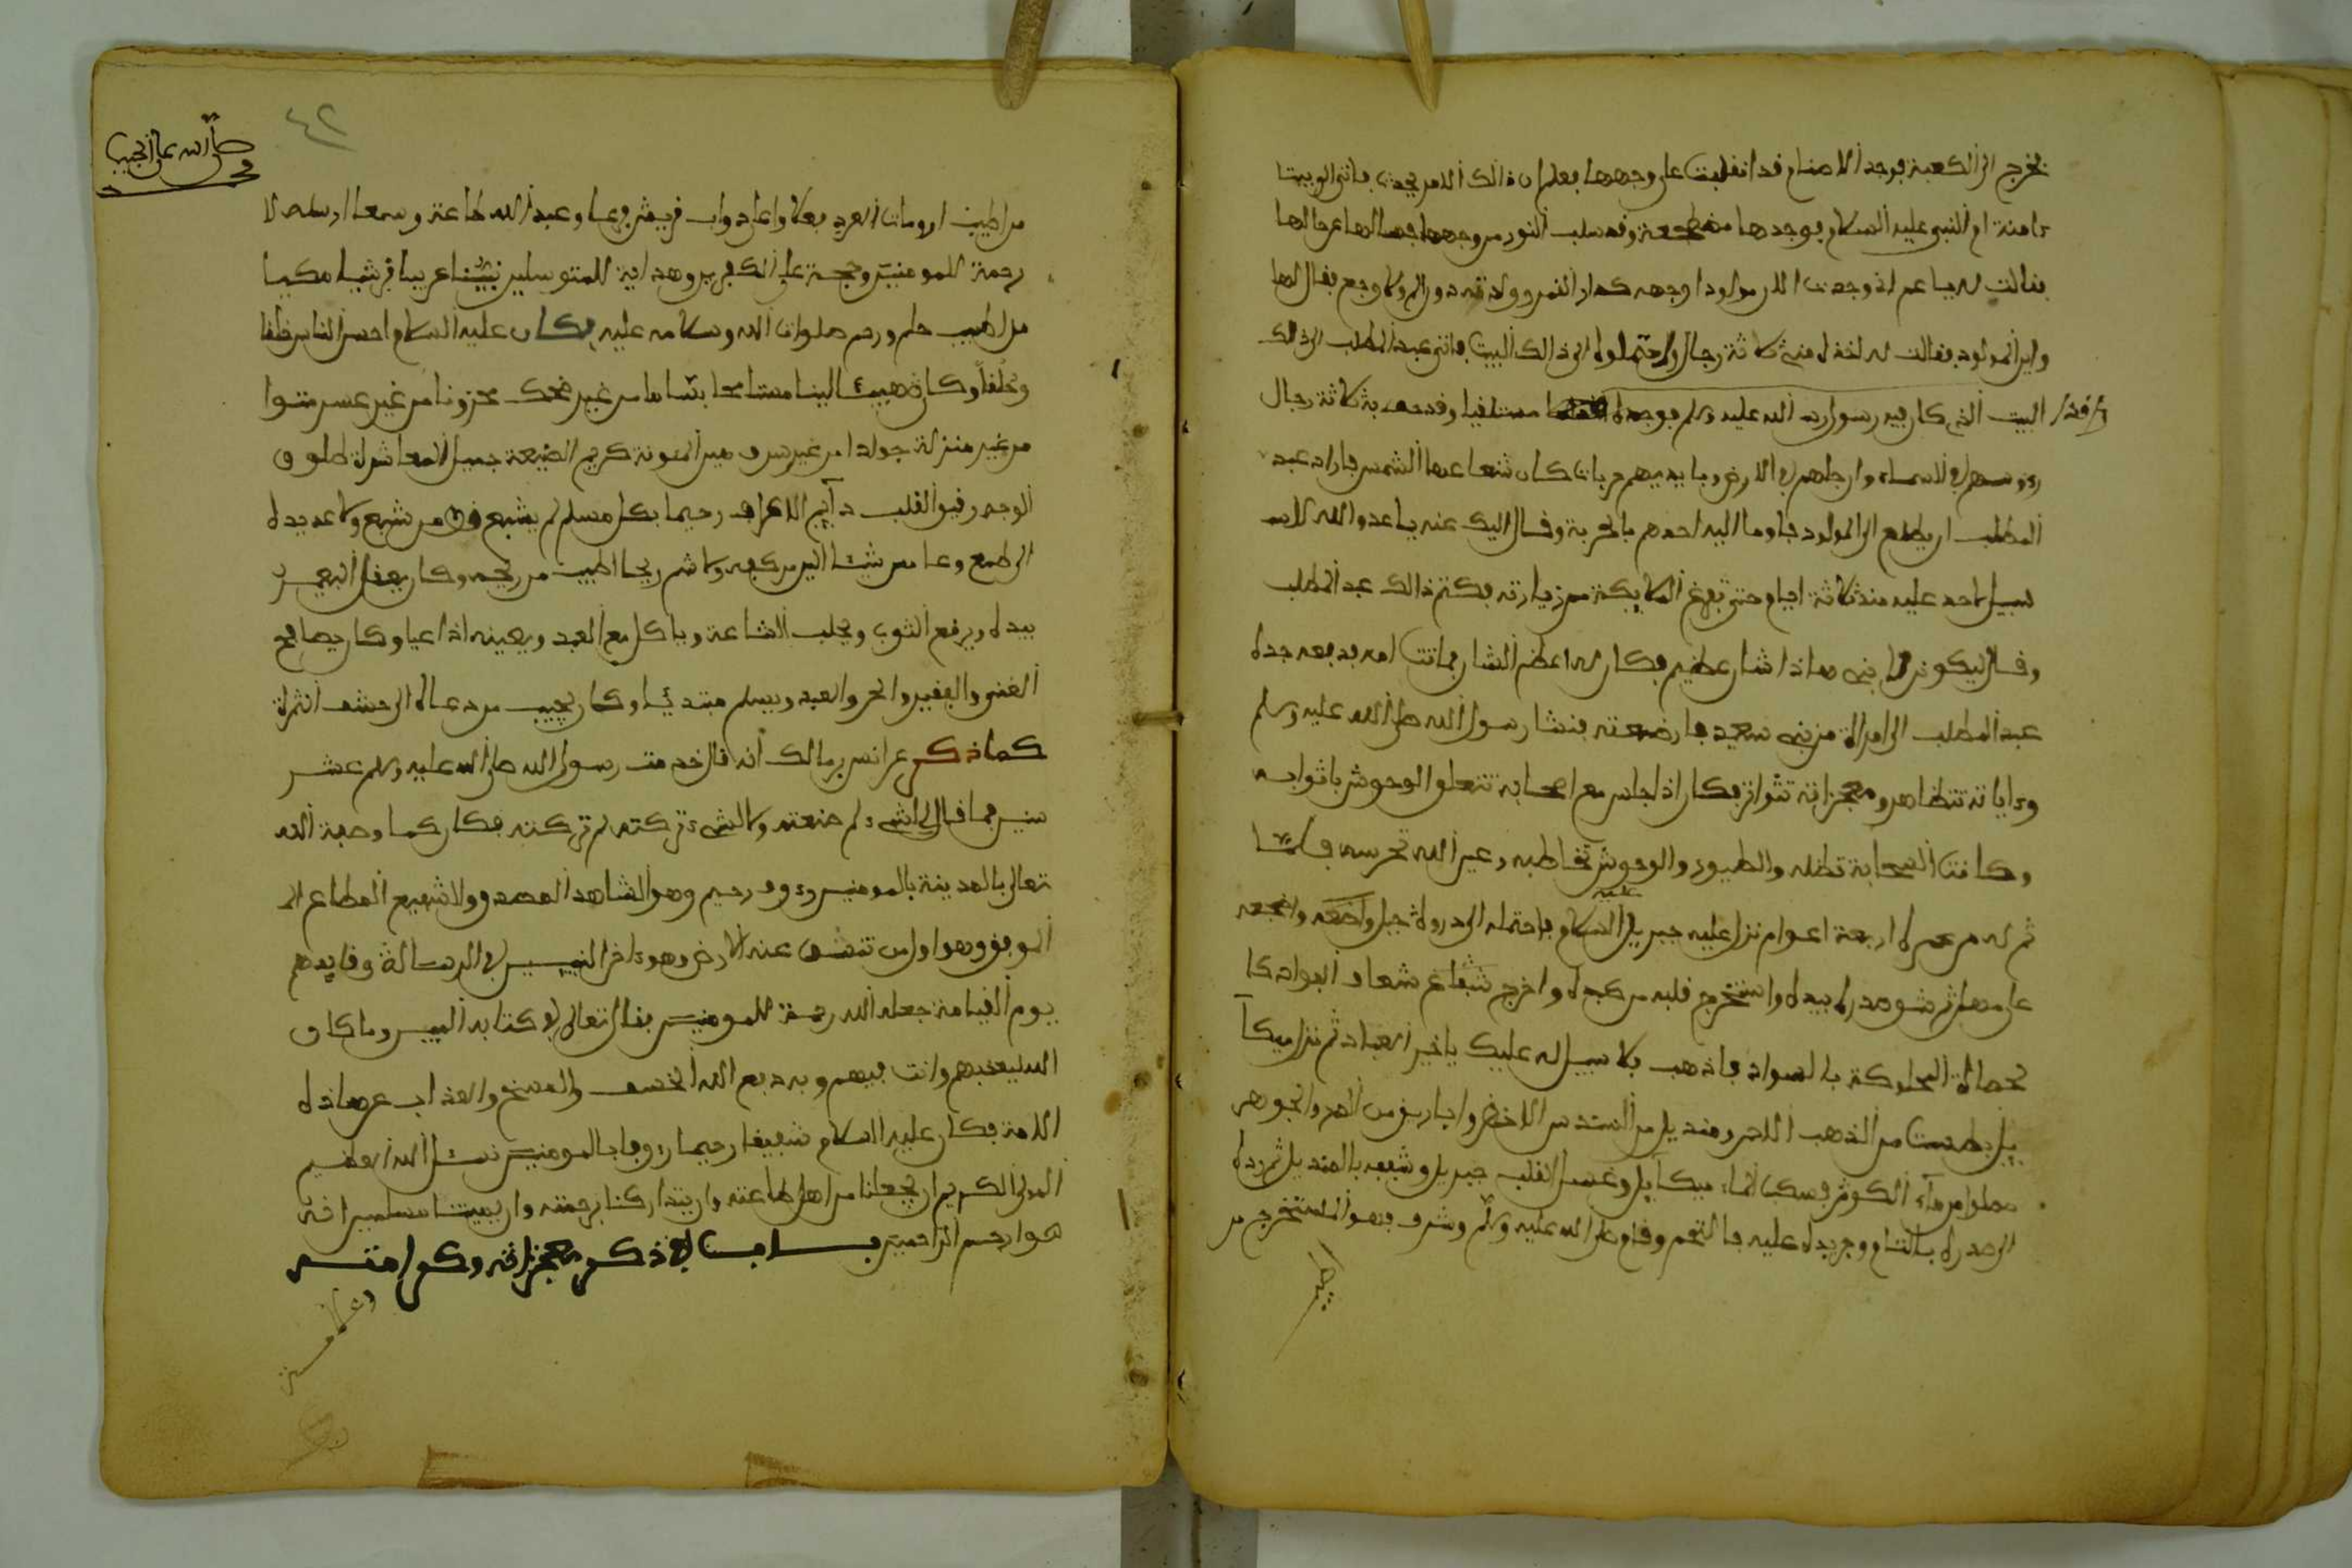 فخرج الى الكعبة فوجد الاصنام قد انقلبت على وجهها فعلم ان ذالك الامر يحدث فاتى الى بيت
ءامنة ام النبي عليه السلام فوجدها مضطجعة وقد سلب النور من وجهها فسالها عن حالها
فقالت له يا عم اني وجدت الان مولودا وجهه كدار القمر وولدته دون الم ولا وجع فقال لها
واين المولود فقالت له اخذه مني ثلاثة رجال واحتملوه الى ذالك البيت فاتى عبد المطلب الى ذالك
البيت الذي كان فيه رسول الله صلى الله عليه وسلم فوجده مستلقيا وقد حف به ثلاثة رجال
رءوسهم في السماء وارجلهم في الارض وبايديهم حربات كان شعاعها الشمس فاراد عبد
المطلب ان يطلع الى المولود فاوما اليه احدهم بالحربة وقال اليك عنه يا عدو الله ليس
سبيل لاحد عليه منذ ثلاثة ايام حتى تفرغ الملايكة من زيارته فكتم ذالك عبد المطلب
وقال ليكونن لابني هاذا شان عظيم فكان له اعظم الشان فماتت امه فدفعه جده
عبد المطلب الى امراة من بني سعد فارضعته فنشا رسول الله صلى الله عليه وسلم
وءاياته تتظاهر ومعجزاته تتواتر فكان اذا جلس مع اصحابه تتعلق الوحوش باثوابه
وكانت السحابة تظله والطيور والوحوش تخاطبه وعين الله تحرسه فلما
تم له من عمره اربعة اعوام نزل عليه جبريل عليه السلام فاحتمله الى ذروة جبل واضجعه
على مهل ثم شق صدره بيده واستخرج قلبه من كبده واخرج
المملوكة بالسواد فاذهب فلا سبيل له عليك يا خير العباد ثم نزل ميكآ
ييل بطست من الذهب الاحمر ومنديل من السندس الاخضر واباريق من الدر والجوهر
مملوا من ماء الكوثر فسكب الماء ميكآييل وغسل القلب جبريل ونشفه بالمنديل ثم رده
الى صدره بالتمام ومر يده عليه فالتحم وقام صلى الله عليه وسلم وشرف فهو المستخرج من
صلى الله على الحبيب
٤٢
من اطيب ارومات العرب فعلا واعلى ذواب قريش فرعا وعبد الله طاعة وسمعا ارسله الله
رحمة للمومنين وحجة على الكافرين وهداية للمتوسلين نبيا عربيا قرشيا مكيا
من اطيب حلم ورحم صلوات الله وسلامه عليه فكان عليه السلام احسن الناس خلقا
وخلقا وكان هينا لينا متسامحا بساما من غير ضحك محزونا من غير عبس متواضعا
من غير منزلة جوادا من غير سرف هين المئونة كريم الطبيعة جميل المعاشرة طلوق
الوجه رقيق القلب دآيم الاطراق رحيما بكل مسلم لم يشبع قط من شبع ولا مد يده
الى طمع وما مس شيئا الين من كفه ولا شم ريحا اطيب من ريحه وكان يعقل البعير
بيده ويرقع الثوب ويحلب الشاة وياكل مع العبد ويعينه اذا عيا وكان يصافح
الغني والفقير والحر والعبد ويسلم مبتديا وكان يجيب من دعاه الى حشف الثمرة
كما ذكر عن انس بن مالك انه قال خدمت رسول الله صلى الله عليه وسلم عشر
سنين فما قال لي لشيء لم صنعته ولا لشيء تركته لم تركته فكان كما وصفه الله
تعالى بالمدينة بالمومنين رءوف رحيم وهو الشاهد المصدق والشفيع المطاع
الموفق وهو اول من تنشق عنه الارض وهو ءاخر النبيين في الرسالة وقايدهم
يوم القيامة جعله الله رحمة للمومنين فقال تعالى في كتابه المبين وما كان
الله ليعذبهم وانت فيهم وبه دفع الله الخسف والمسخ والعذاب عن هاذه
الامة فكان عليه السلام شفيقا رحيما رءوفا بالمومنين نسئل الله العظيم
المولى الكريم ان يجعلنا من اهل طاعته وان يتداركنا برحمته وان يميتنا مسلمين انه
هو ارحم الراحمين باب في ذكر معجزاته وكرامته